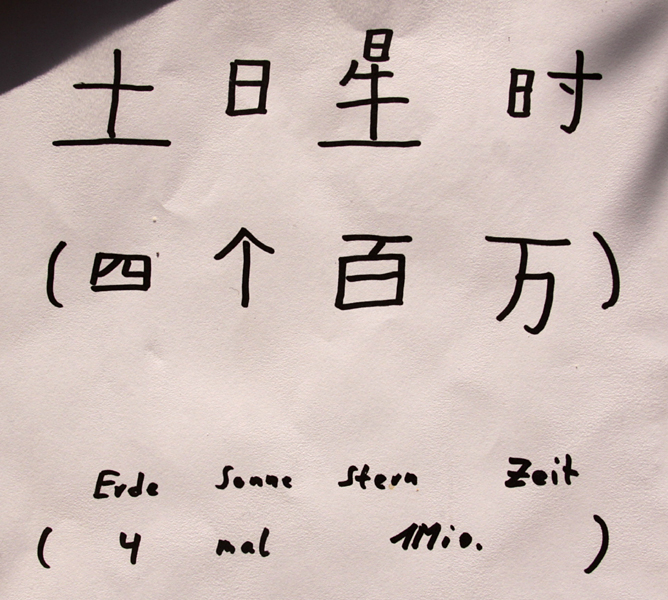 土 日 星 时
(四 个 百 万)
Erde Sonne Stern Zeit
( 4 mal 1Mio. )